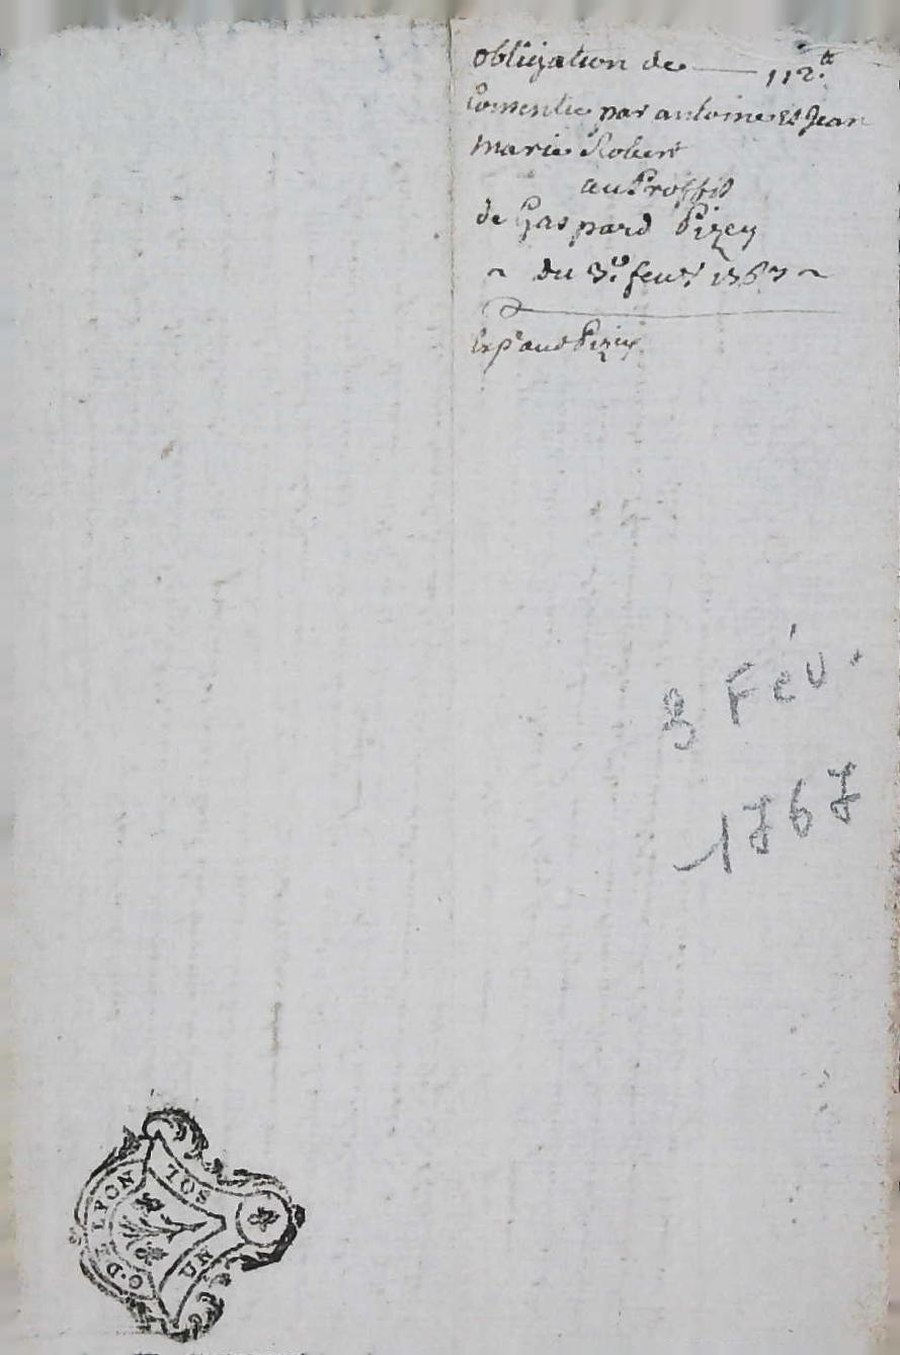 obligation de — 112.tt
Consentie par antoine Et Jean
marie Robert
au Proffit
de Gaspard Pizey
~ du 3.e feur. 1767 ~
Exp.e aud Pizey
3 Fév.
1767
G. DE LYON
UN SOL